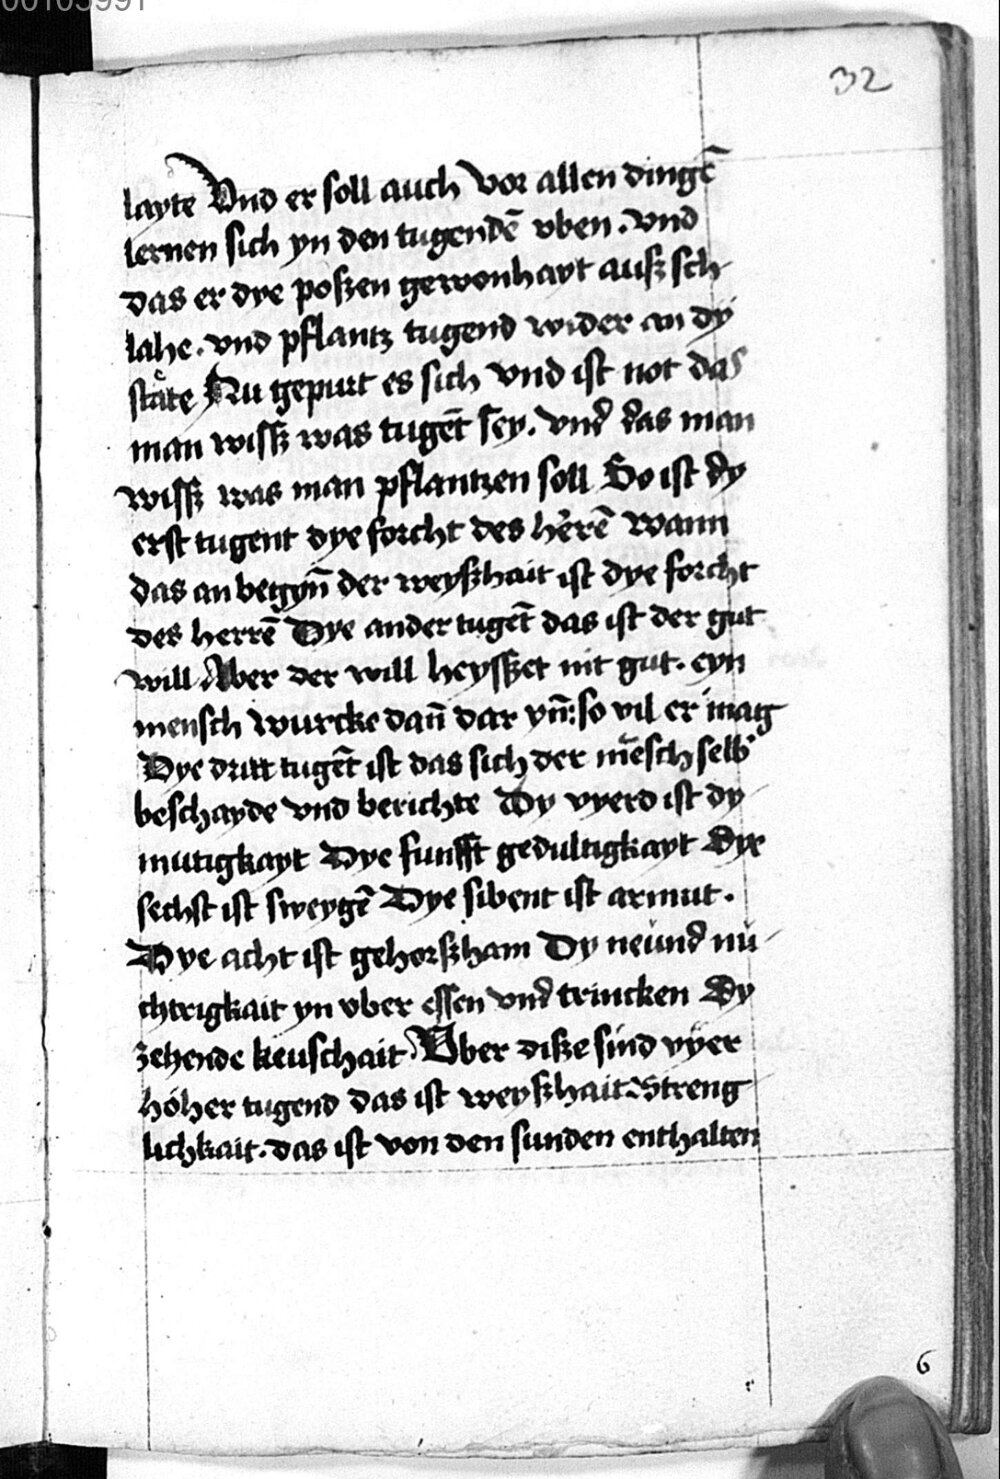 00105991
32
layte Vnd er soll auch vor allen dingē
lernen sich yn den tugendē vben. vnd
das er dye poßen gewonhayt auß sch
lahe. vnd pflantz tugend wider an dÿ
stäte Nu gepurt es sich vnd ist not das
man wissz was tugēt sey. vnd das man
wissz was man pflantzen soll So ist dy
erst tugent dye forcht des herrē wann
das an begyn̄ der weyßhait ist dye forcht
des herrē Dye ander tugēt das ist der gut
will Aber der will heysset nit gut. eyn
mensch wurcke dan̄ dar yn̄: so vil er mag
Dye dritt tugēt ist das sich der mēsch selb
beschayde vnd berichte Dy vyerd ist dy
mutigkayt Dye funfft gedultigkayt Dye
sechst ist sweygē Dye sibent ist armut.
Dye acht ist gehorßham Dy neund nu
chtrigkait yn vber essen vnd trincken Dy
zehende keuschait Vber diße sind vÿer
höher tugend das ist weyßhait Streng
lichkait. das ist von den sunden enthalten
6